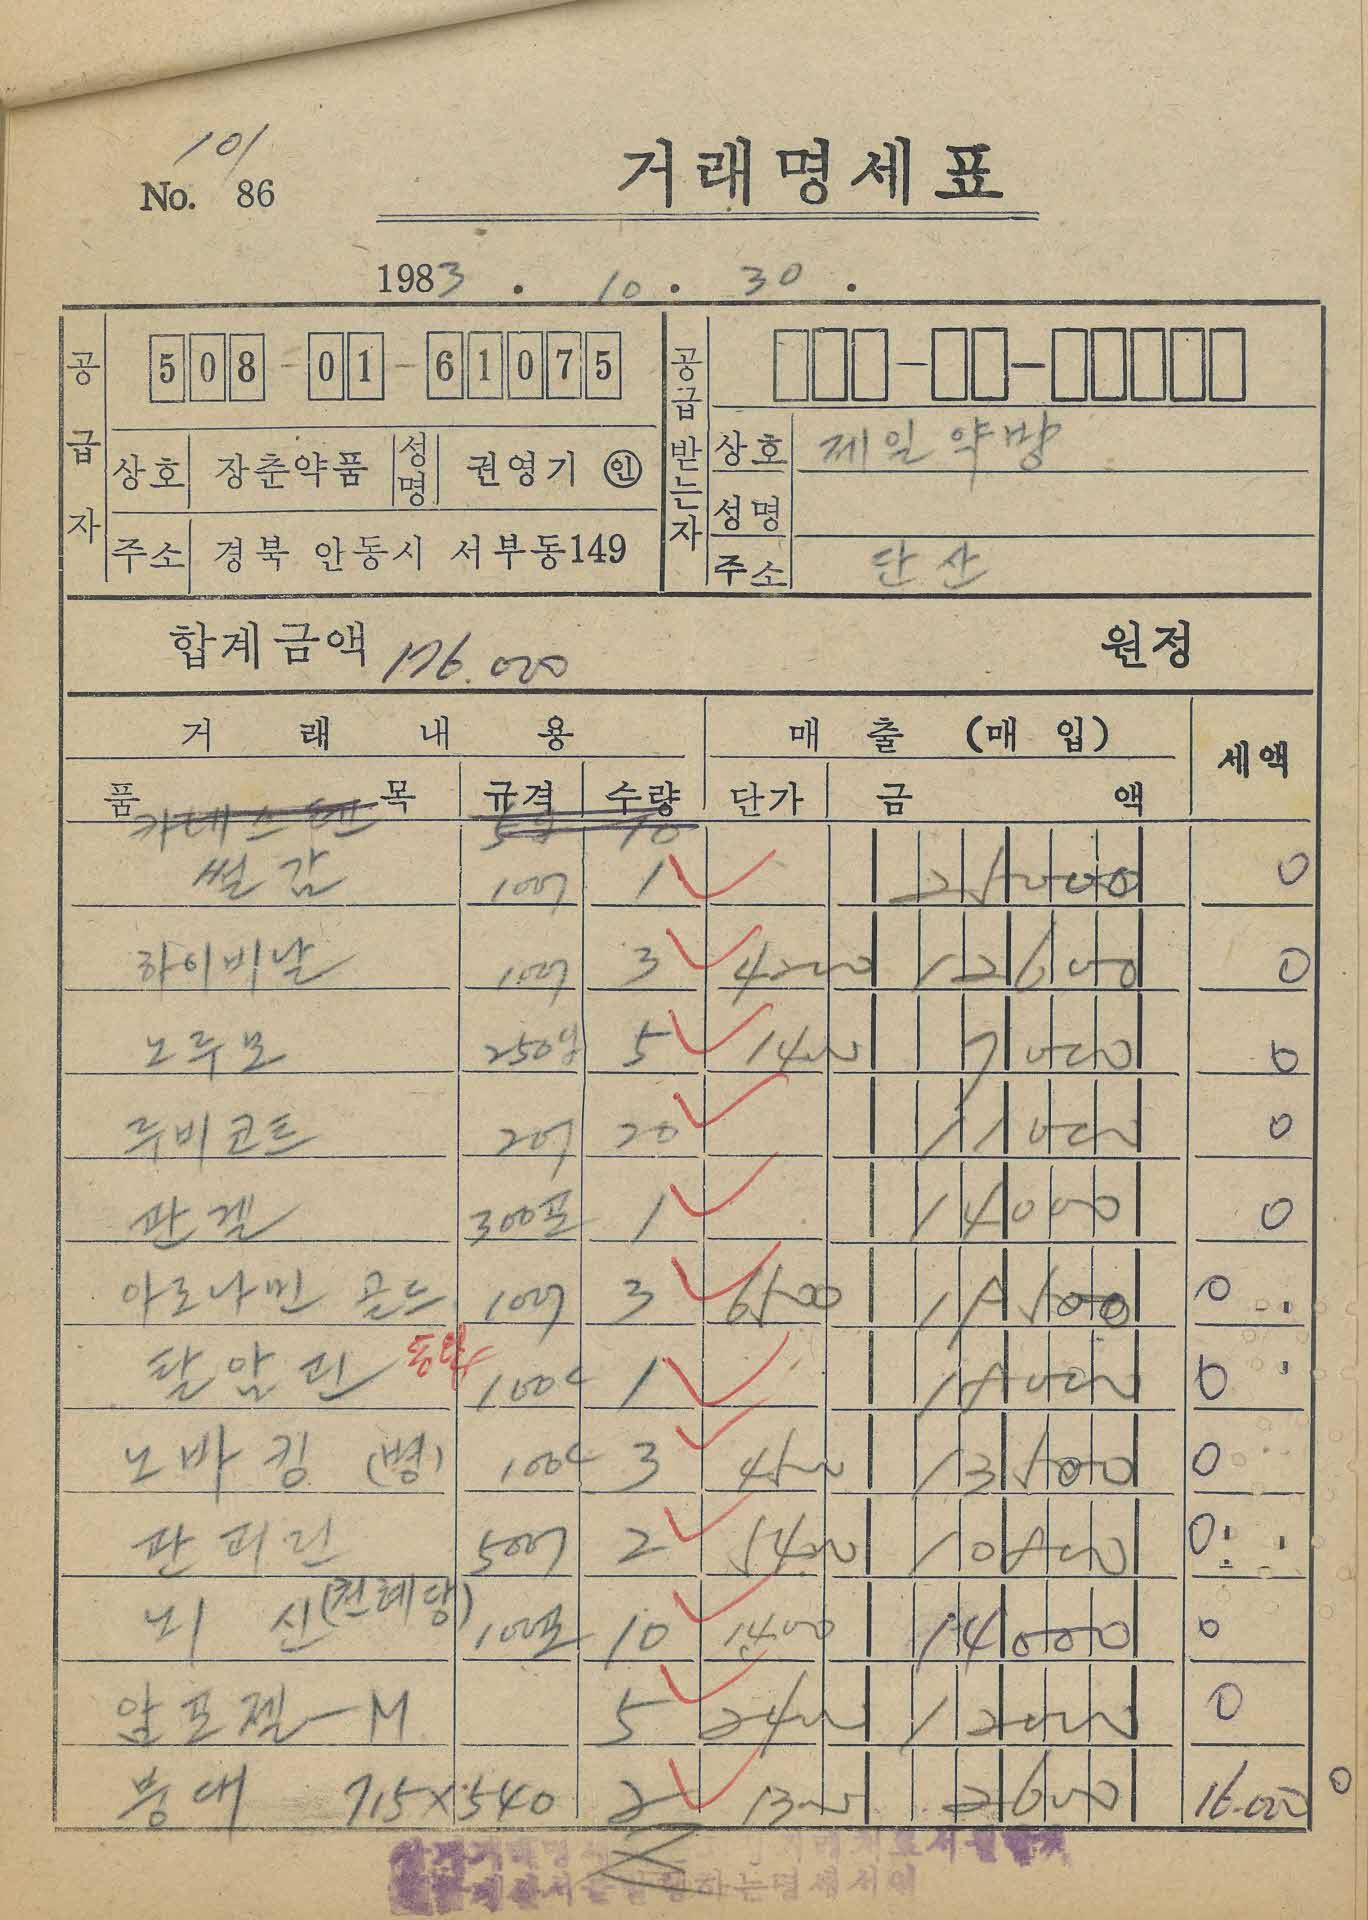 101
No. 86
거래명세표
1983 . 10 . 30 .
공급자
508-01-61075
상호 장춘약품 성명 권영기 ㊞
주소 경북 안동시 서부동149
공급받는자
상호 제일약방
성명
주소 단산
합계금액 176.000 원정
거래내용 매출 (매입) 세액
품목 규격 수량 단가 금액
카네스텐 5g 10
썰감 100T 1 25000 0
하이비날 100T 3 4200 12600 0
노루모 250g 5 1400 7000 0
루비코트 20T 20 11000 0
판겔 300포 1 14000 0
아로나민 골드 100T 3 6500 19500 0
탈암린 100C 1 18000 0
노바킹 (병) 100C 3 4500 13500 0
판피린 500T 2 5400 10800 0
뇌신(천혜당) 100포 10 1400 14000 0
암포젤-M 5 2400 12000 0
붕대 715×540 2 1300 2600 16.000 0